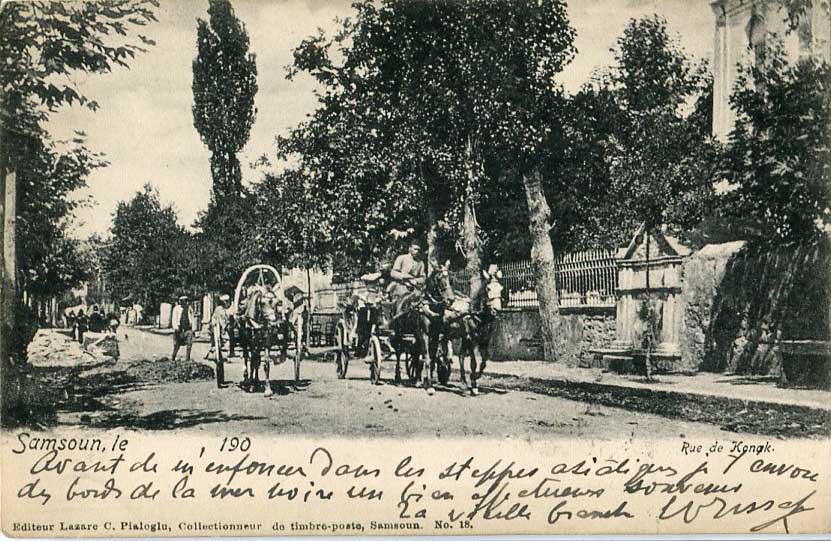 Samsoun, le 190
Rue de Konak.
Avant de m'enfoncer dans les steppes asiatiques j'envoie
des bords de la mer noire un bien affectueux souvenir
La vieille branche
Editeur Lazare C. Pialoglu, Collectionneur de timbre-poste, Samsoun. No. 18.